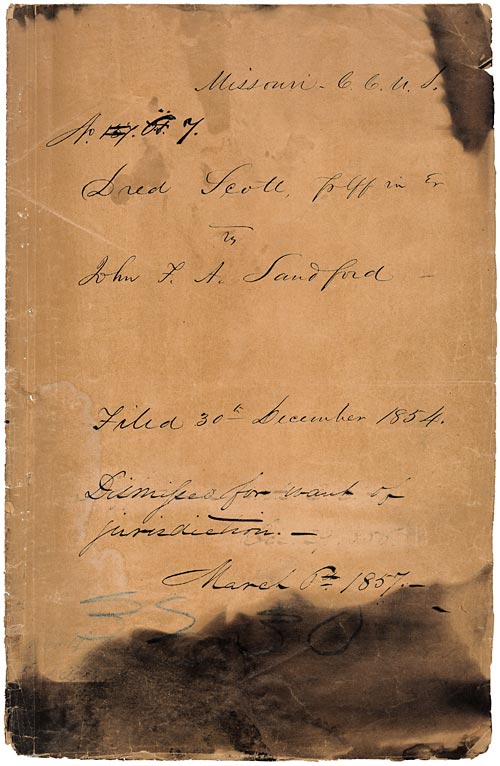 Missouri - C. C. U. S.
No. 7.
Dred Scott, Plff in Er
vs
John F. A. Sandford -
Filed 30th December 1854.
Dismissed for want of
jurisdiction. -
March 6th 1857. -